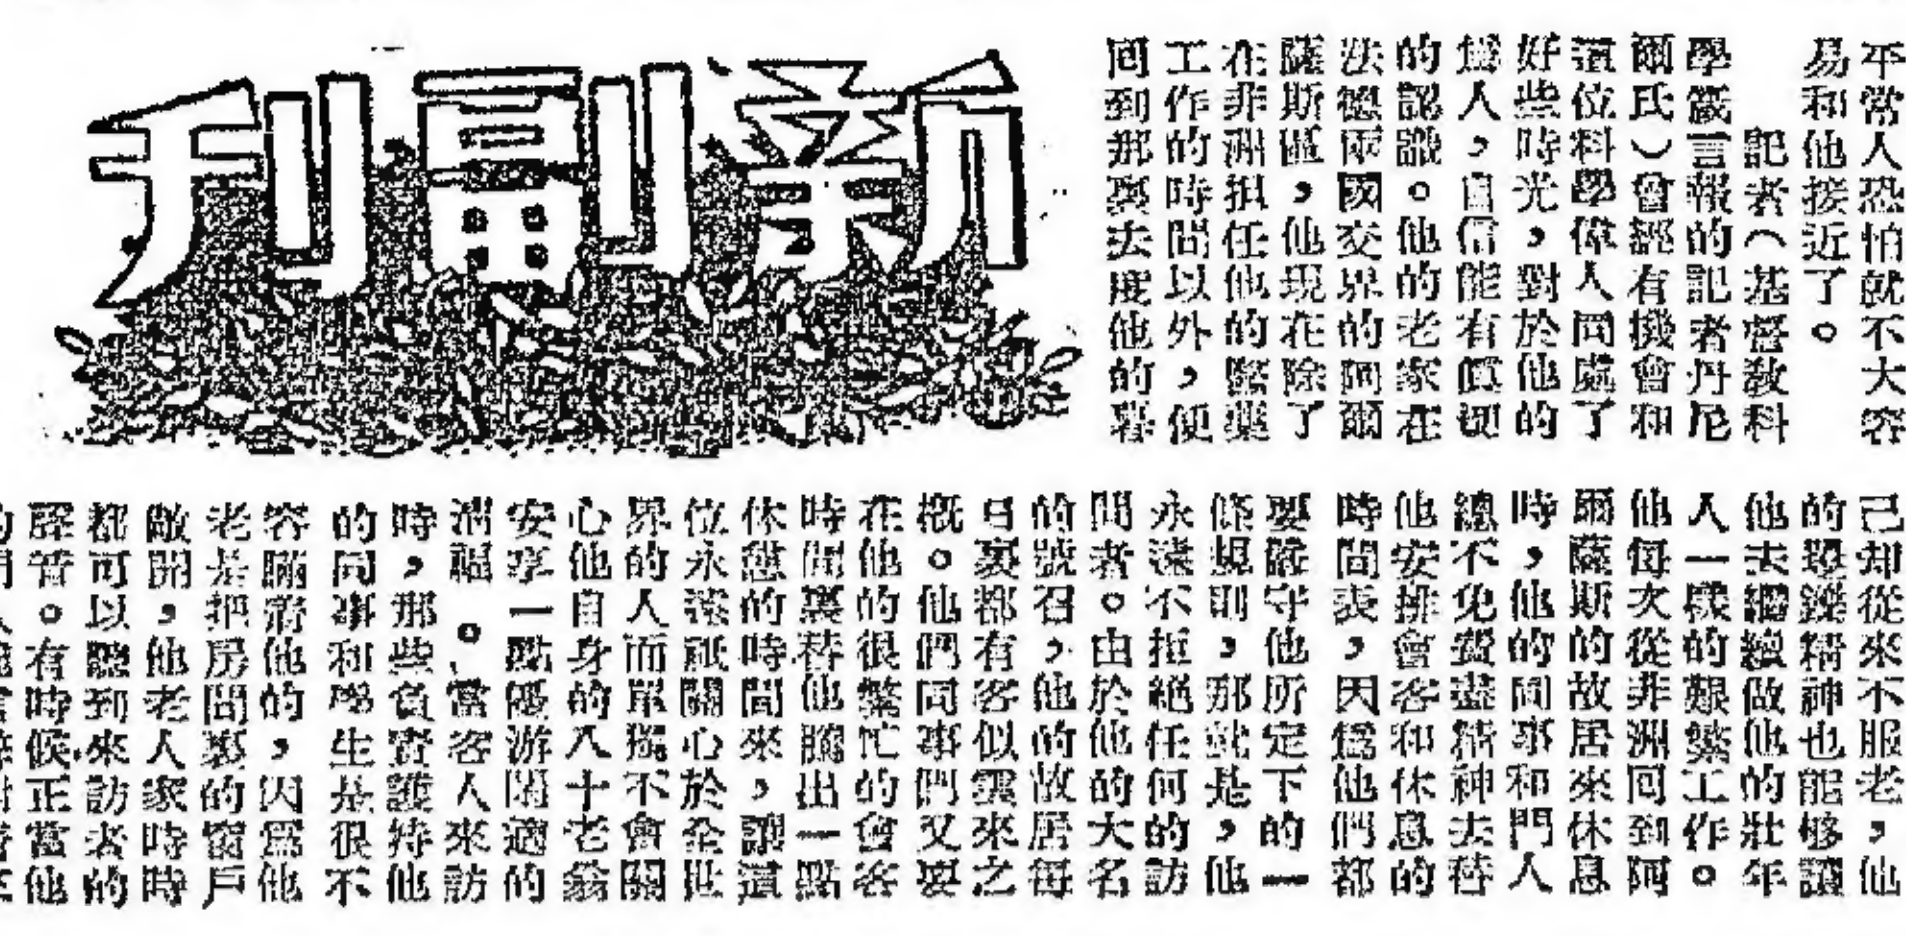 新副刊
平常人恐怕就不大容
易和他接近了。
記者(基督敎科
學箴言報的記者丹尼
爾氏)會經有機會和
這位科學偉人同處了
好些時光,對於他的
爲人,自信能有價切
的認識。他的老家在
法德兩國交界的阿爾
薩斯區,他現在除了
在非洲担任他的醫藥
工作的時間以外,便
回到那裏去度他的暮
己却從來不服老,他
的堅錢精神也能够讓
他去繼續做他的壯年
人一樣的艱繁工作。
他每次從非洲回到阿
爾薩斯的故居來休息
時,他的同事和門人
總不免費盡精神去替
他安排會客和休息的
時間表,因爲他們都
要嚴守他所定下的一
條規則,那就是,他
永遠不拒絕任何的訪
問者。由於他的大名
的號召,他的故居每
日裏都有客似雲來之
概。他們同事們又要
在他的很繁忙的會客
時間裏替他騰出一點
休憇的時間來,讓這
位永遠祇關心於全世
界的人而單獨不會關
心他自身的八十老翁
安享一點優游閒適的
清福。當客人來訪
時,那些負責護持他
的同事和學生是很不
容瞞着他的,因爲他
老是把房間裏的窗戶
敞開,他老人家時時
都可以聽到來訪者的
聲音。有時候正當他